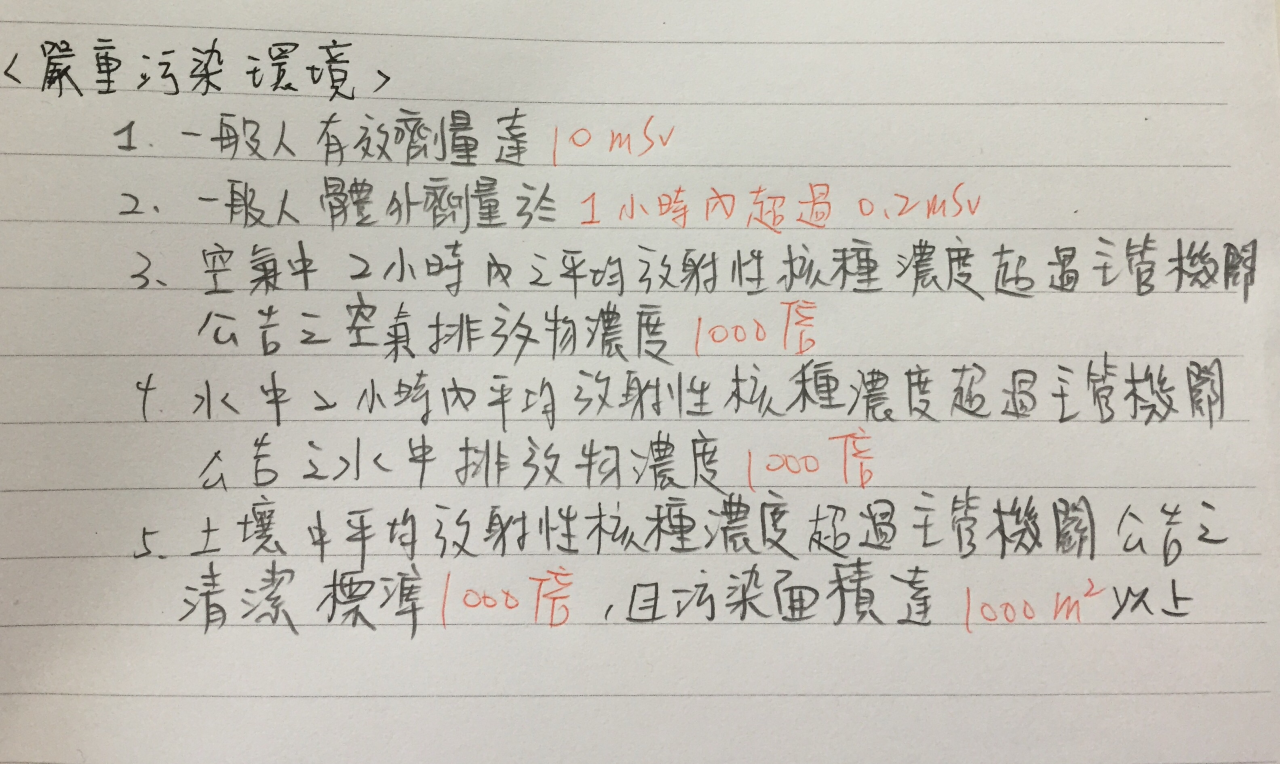 <嚴重污染環境>
1. 一般人有效劑量達 10 mSv
2、一般人體外劑量於 1小時內超過 0.2mSv
3、空氣中2小時內之平均放射性核種濃度超過主管機關
公告之空氣排放物濃度 1000倍
4. 水中2小時內平均放射性核種濃度超過主管機關
公告之水中排放物濃度 1000倍
5、土壤中平均放射性核種濃度超過主管機關公告之
清潔標準1000倍,且污染面積達 1000 m²以上